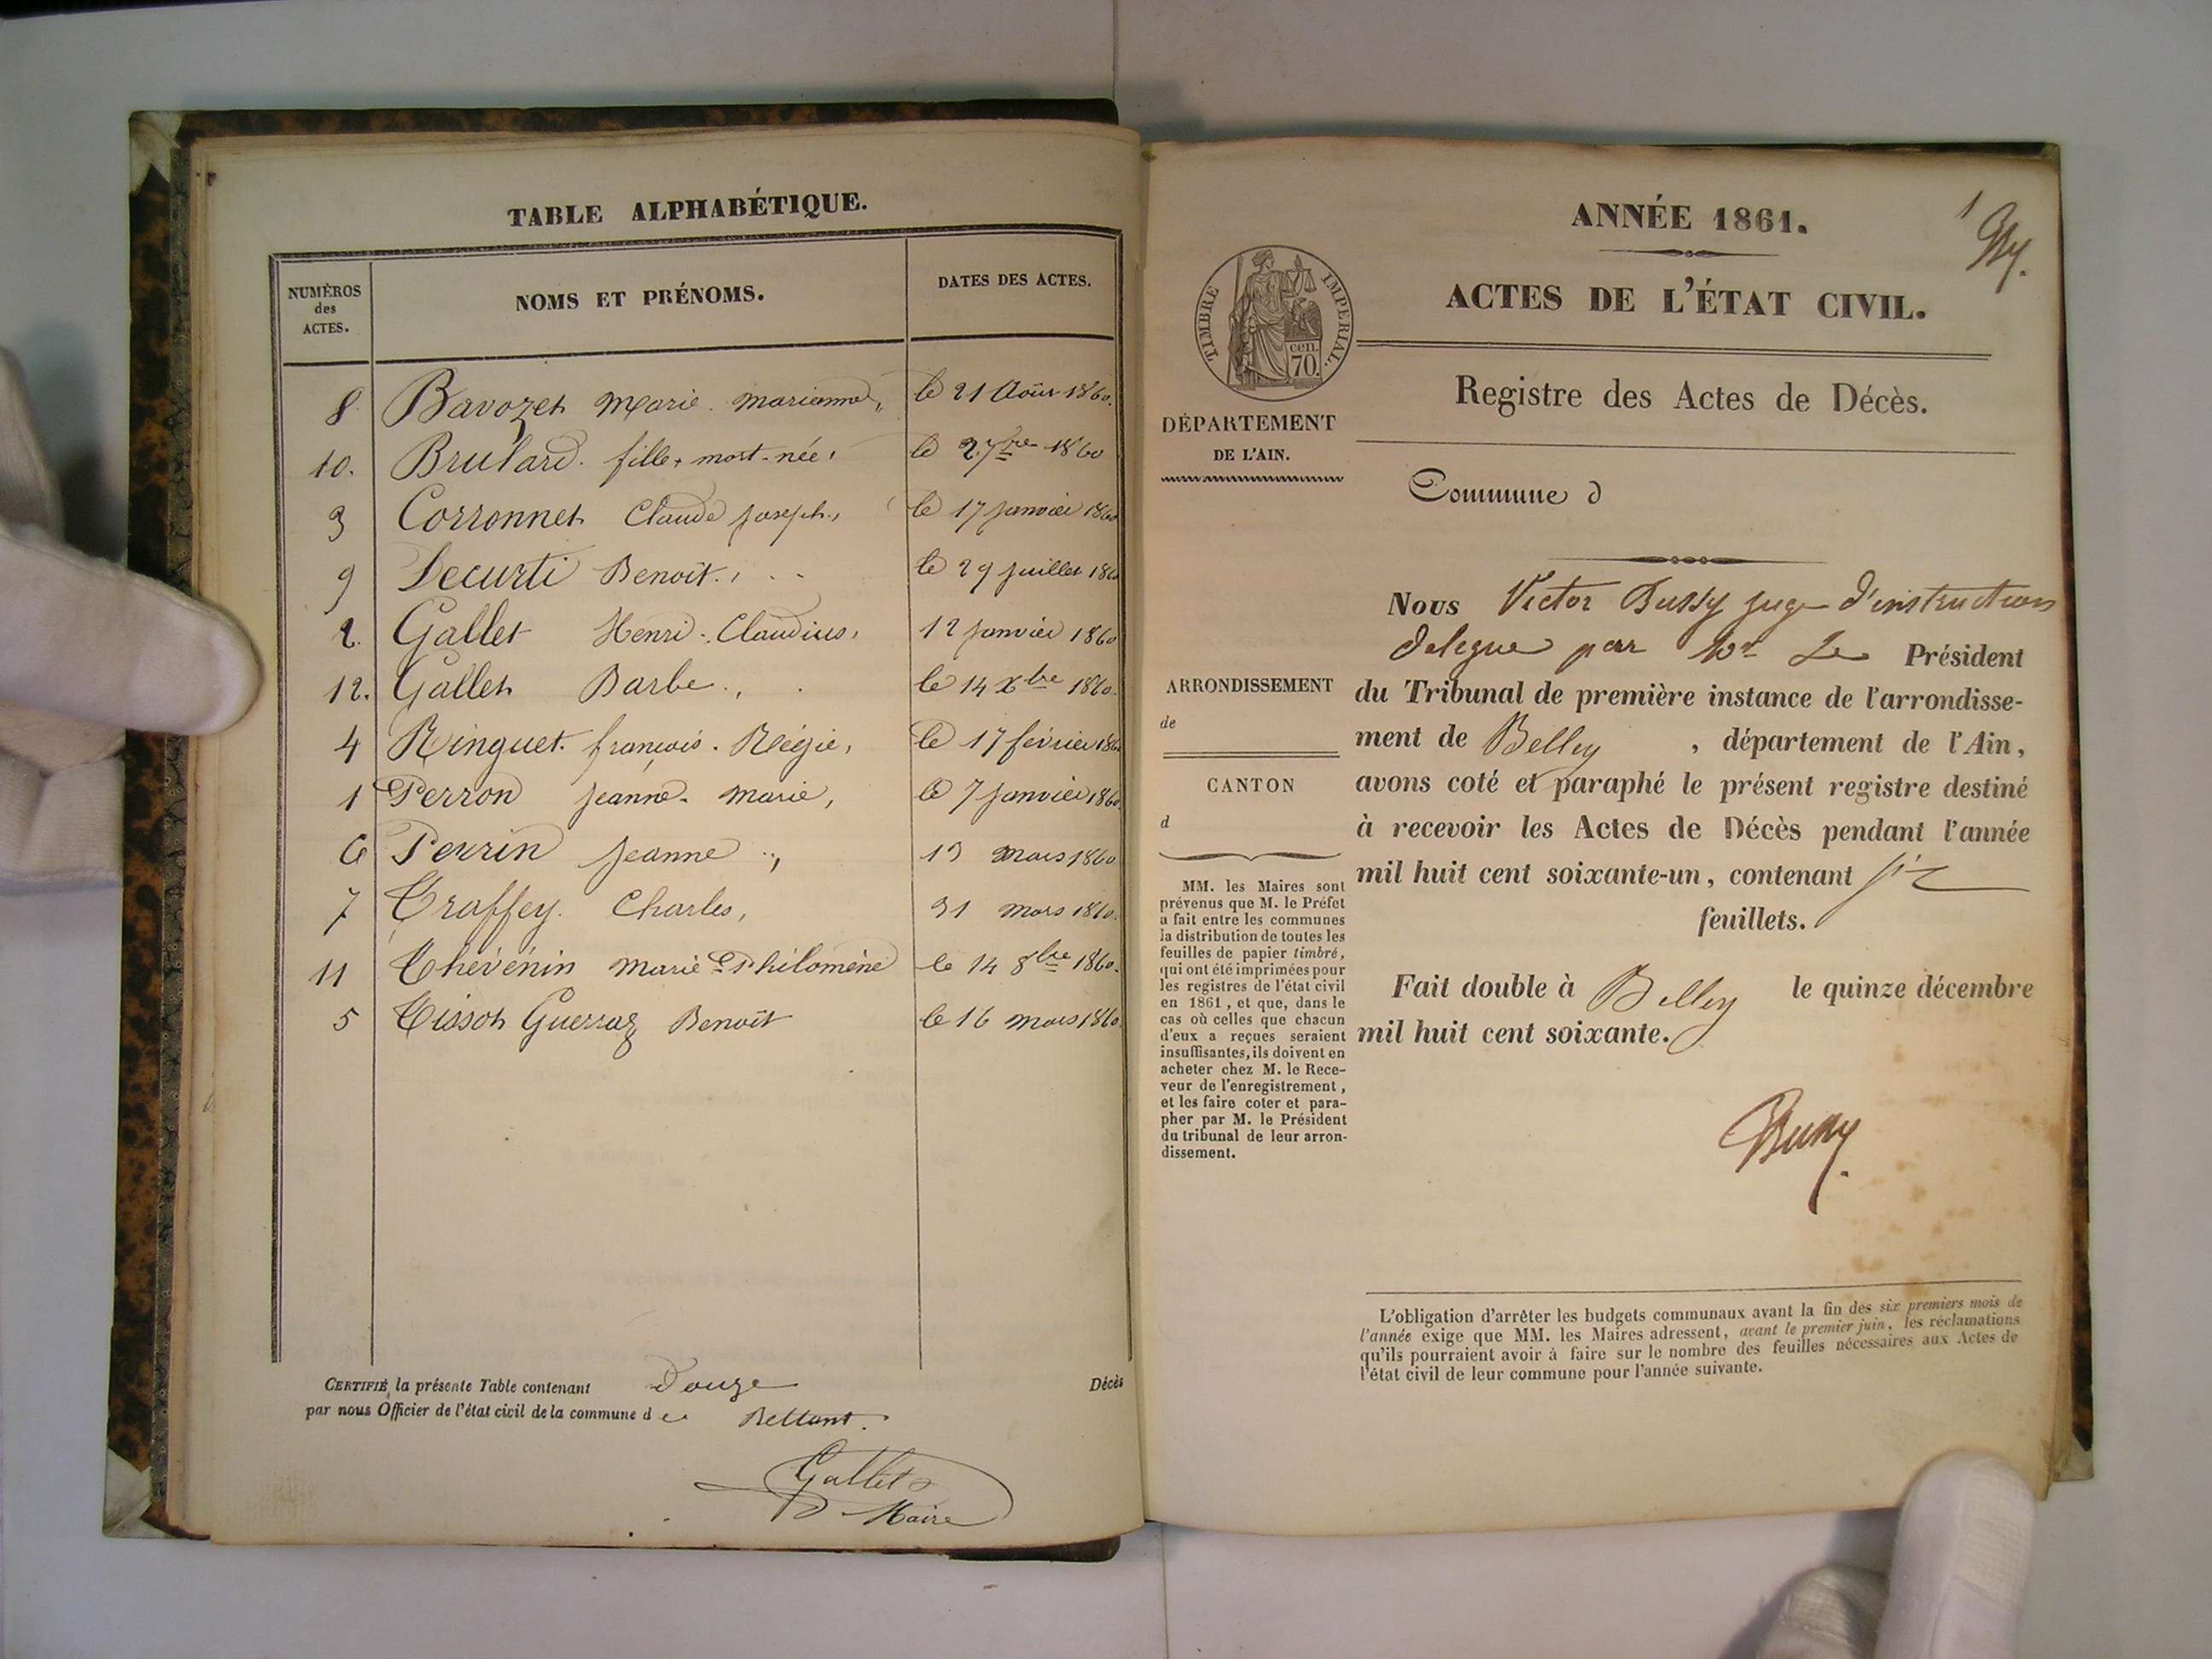 TABLE ALPHABÉTIQUE.
NUMÉROS des ACTES.
NOMS ET PRÉNOMS.
DATES DES ACTES.
8 Bavozet Marie Marianne, le 21 Août 1860.
10. Brulard. fille mort-née, le 2 7bre 1860
3 Corronnet Claude Joseph, le 17 Janvier 1860
9 Decurti Benoît. le 29 Juillet 1860
2. Gallet Henri-Claudius, 12 Janvier 1860
12. Gallet Barbe., le 14 Xbre 1860.
4 Ringuet. françois. Régie, le 17 février 1860
1 Perron Jeanne-Marie, le 7 Janvier 1860
6 Perrin Jeanne, 13 Mars 1860
7 Traffey. Charles, 31 Mars 1860.
11 Thévénin Marie Philomène le 14 8bre 1860.
5 Tissot Guerraz Benoît le 16 Mars 1860.
CERTIFIÉ, la présente Table contenant Douze Décès
par nous Officier de l'état civil de la commune de Bettant.
Gallet
Maire
1
ANNÉE 1861.
ACTES DE L'ÉTAT CIVIL.
TIMBRE IMPERIAL.
cen.
70.
Registre des Actes de Décès.
DÉPARTEMENT
DE L'AIN.
Commune d
Nous Victor Bussy juge d'instruction
délégué par Mr Le Président
du Tribunal de première instance de l'arrondisse-
ment de Belley, département de l'Ain,
avons coté et paraphé le présent registre destiné
à recevoir les Actes de Décès pendant l'année
mil huit cent soixante-un, contenant six
feuillets.
Fait double à Belley le quinze décembre
mil huit cent soixante.
Bussy
ARRONDISSEMENT
de
CANTON
d
MM. les Maires sont
prévenus que M. le Préfet
a fait entre les communes
la distribution de toutes les
feuilles de papier timbré,
qui ont été imprimées pour
les registres de l'état civil
en 1861, et que, dans le
cas où celles que chacun
d'eux a reçues seraient
insuffisantes, ils doivent en
acheter chez M. le Rece-
veur de l'enregistrement,
et les faire coter et para-
pher par M. le Président
du tribunal de leur arron-
dissement.
L'obligation d'arrêter les budgets communaux avant la fin des six premiers mois de
l'année exige que MM. les Maires adressent, avant le premier juin, les réclamations
qu'ils pourraient avoir à faire sur le nombre des feuilles nécessaires aux Actes de
l'état civil de leur commune pour l'année suivante.